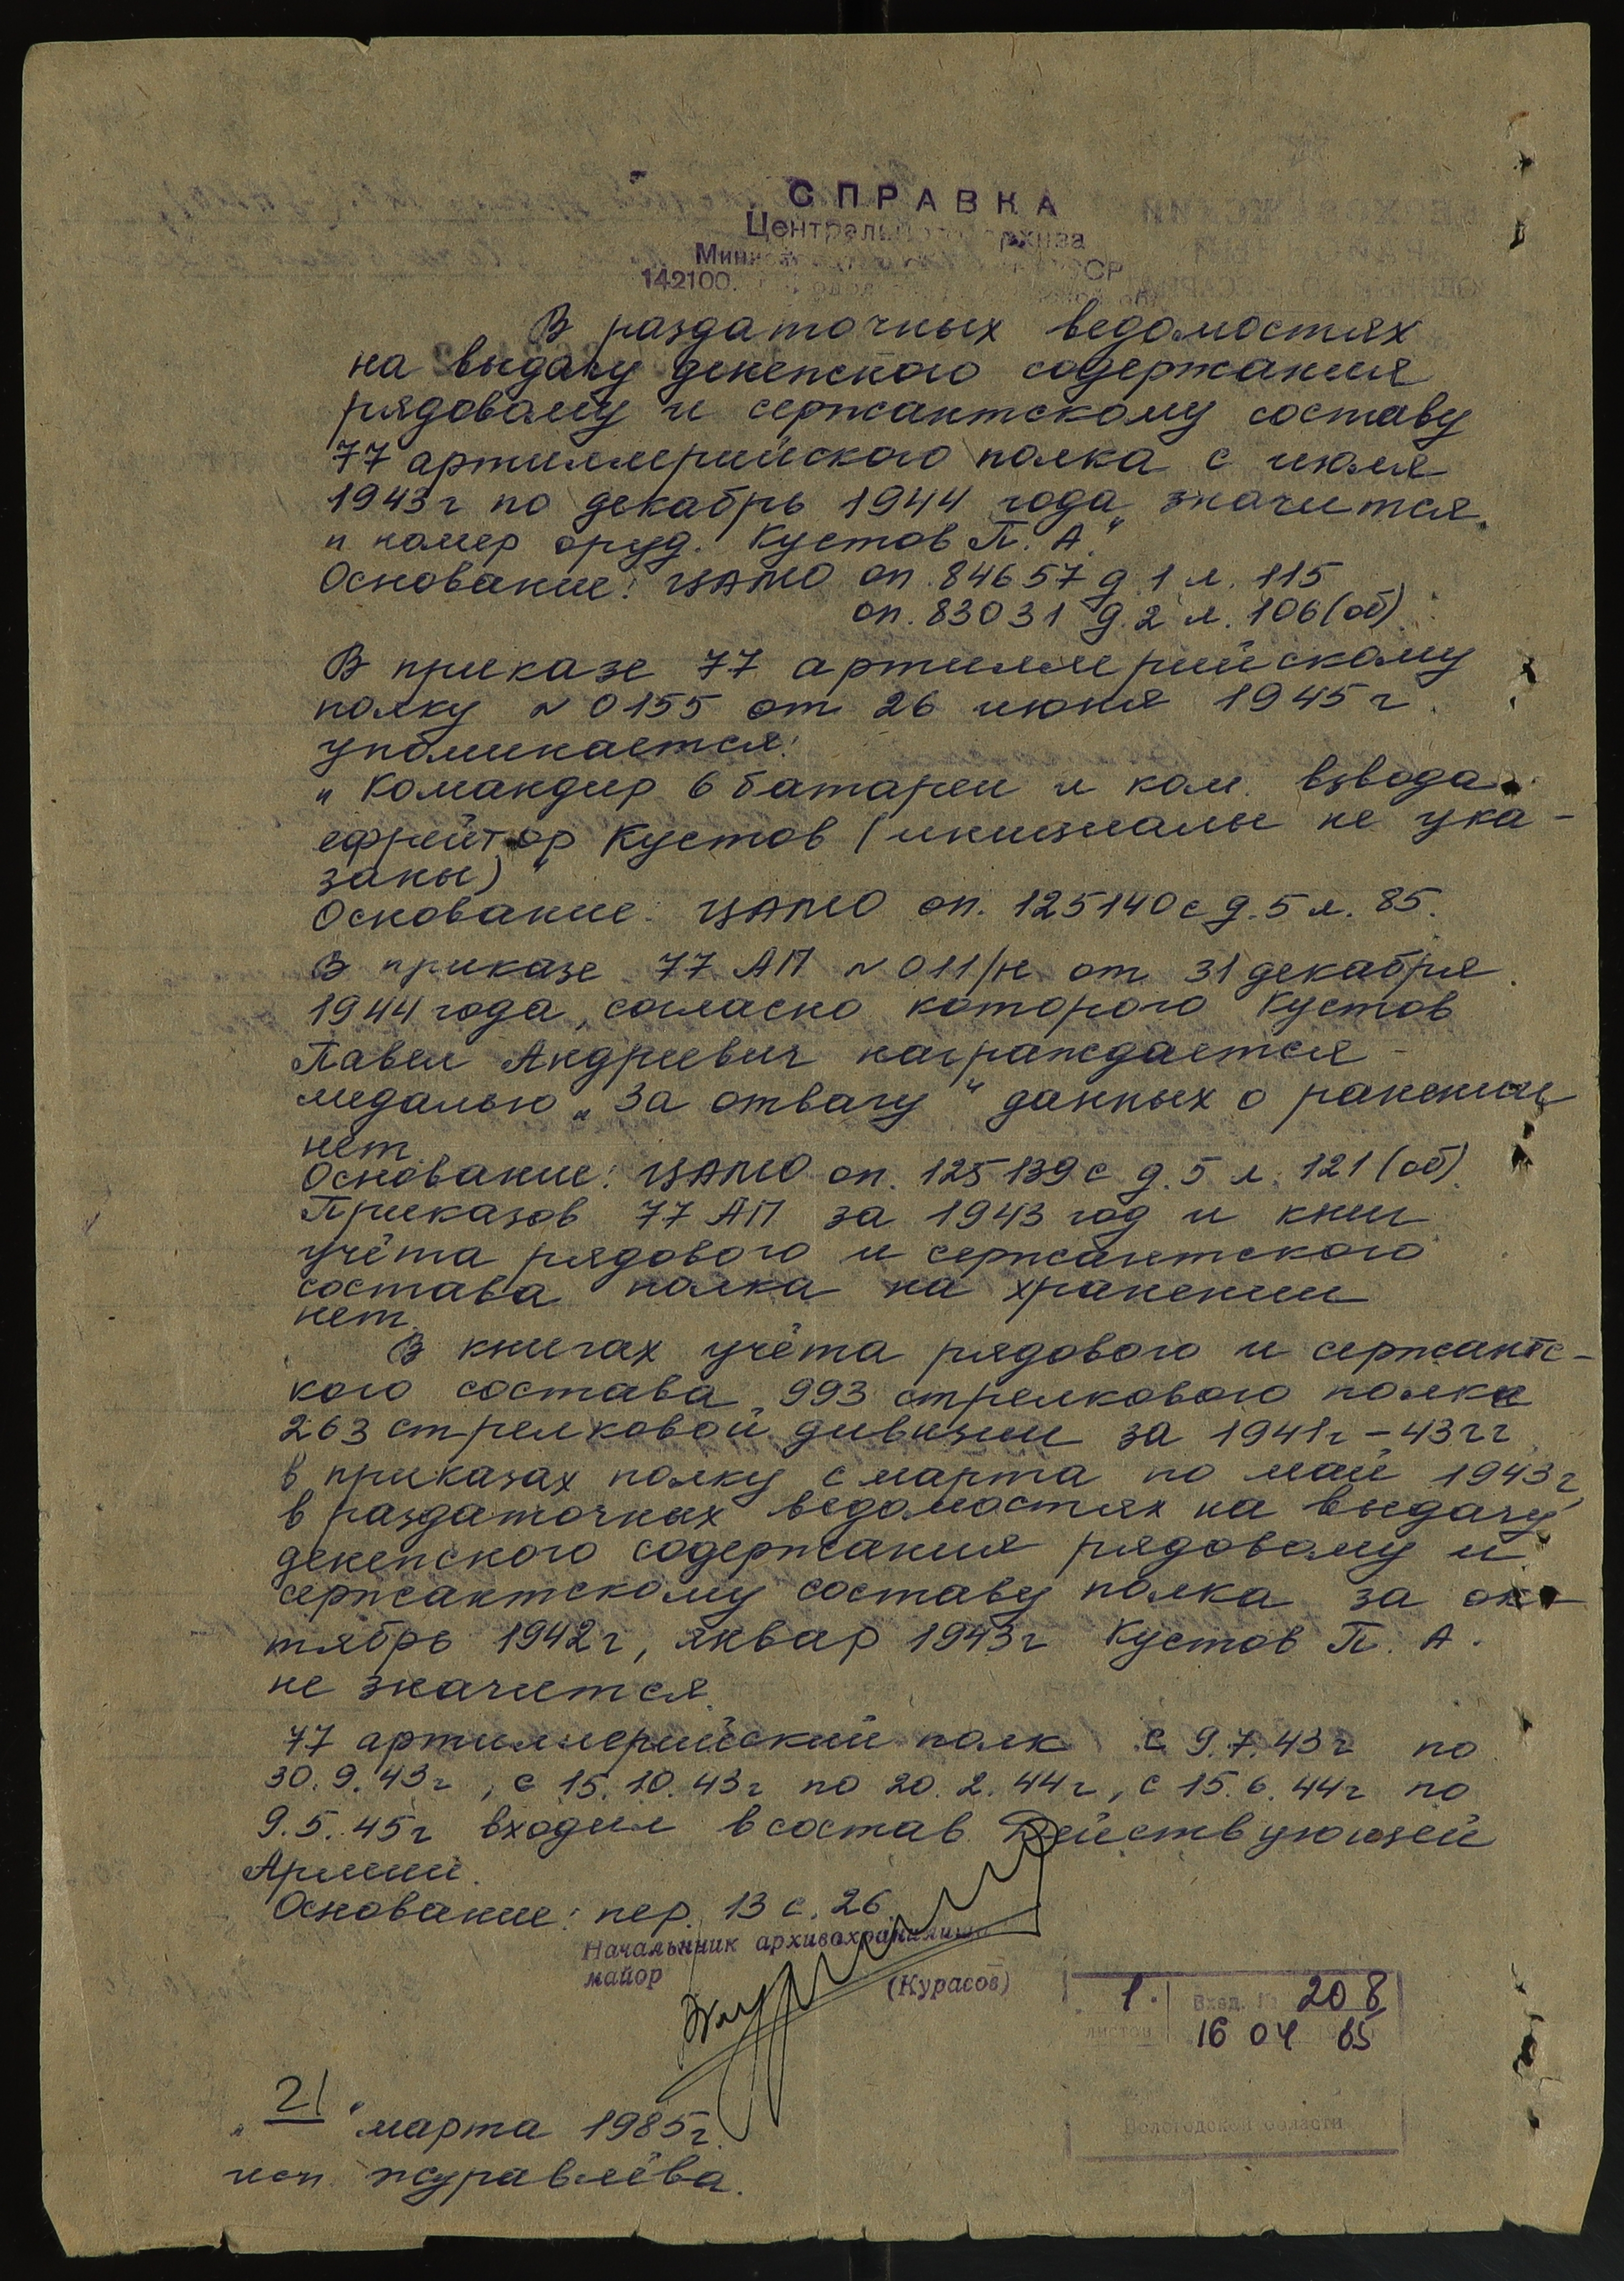 СПРАВКА
Центрального архива
142100.
В раздаточных ведомостях
на выдачу денежного содержания
рядовому и сержантскому составу
77 артиллерийского полка с июля
1943г по декабрь 1944 года значится
„номер оруд. Кустов П. А."
Основание: ЦАМО оп. 84657 д. 1 л. 115
оп. 83031 д. 2 л. 106 (об)
В приказе 77 артиллерийскому
полку №0155 от 26 июня 1945г.
упоминается:
„Командир 6 батареи и ком. взвода
ефрейтор Кустов (инициалы не ука-
заны)"
Основание: ЦАМО оп. 125140с д. 5 л. 85.
В приказе 77 АП №011/н от 31 декабря
1944 года, согласно которого Кустов
Павел Андреевич награждается -
медалью „За отвагу" данных о ранении
нет.
Основание: ЦАМО оп. 125139с д. 5 л. 121 (об).
Приказов 77 АП за 1943 год и книг
учёта рядового и сержантского
состава полка на хранении
нет.
В книгах учёта рядового и сержантс-
кого состава 993 стрелкового полка
263 стрелковой дивизии за 1941г-43гг
в приказах полку с марта по май 1943г,
в раздаточных ведомостях на выдачу
денежного содержания рядовому и
сержантскому составу полка за ок-
тябрь 1942г, январ 1943г Кустов П. А.
не значится.
77 артиллерийский полк с 9.7.43г по
30.9.43г, с 15.10.43г по 20.2.44г, с 15.6.44г по
9.5.45г входил в состав Действующей
Армии.
Основание: пер. 13 с. 26.
Начальник архивохранилища
майор (Курасов)
1. Вход. № 208
листов 16 04 85
Вологодской области
„21" марта 1985г.
исп. Журавлёва.